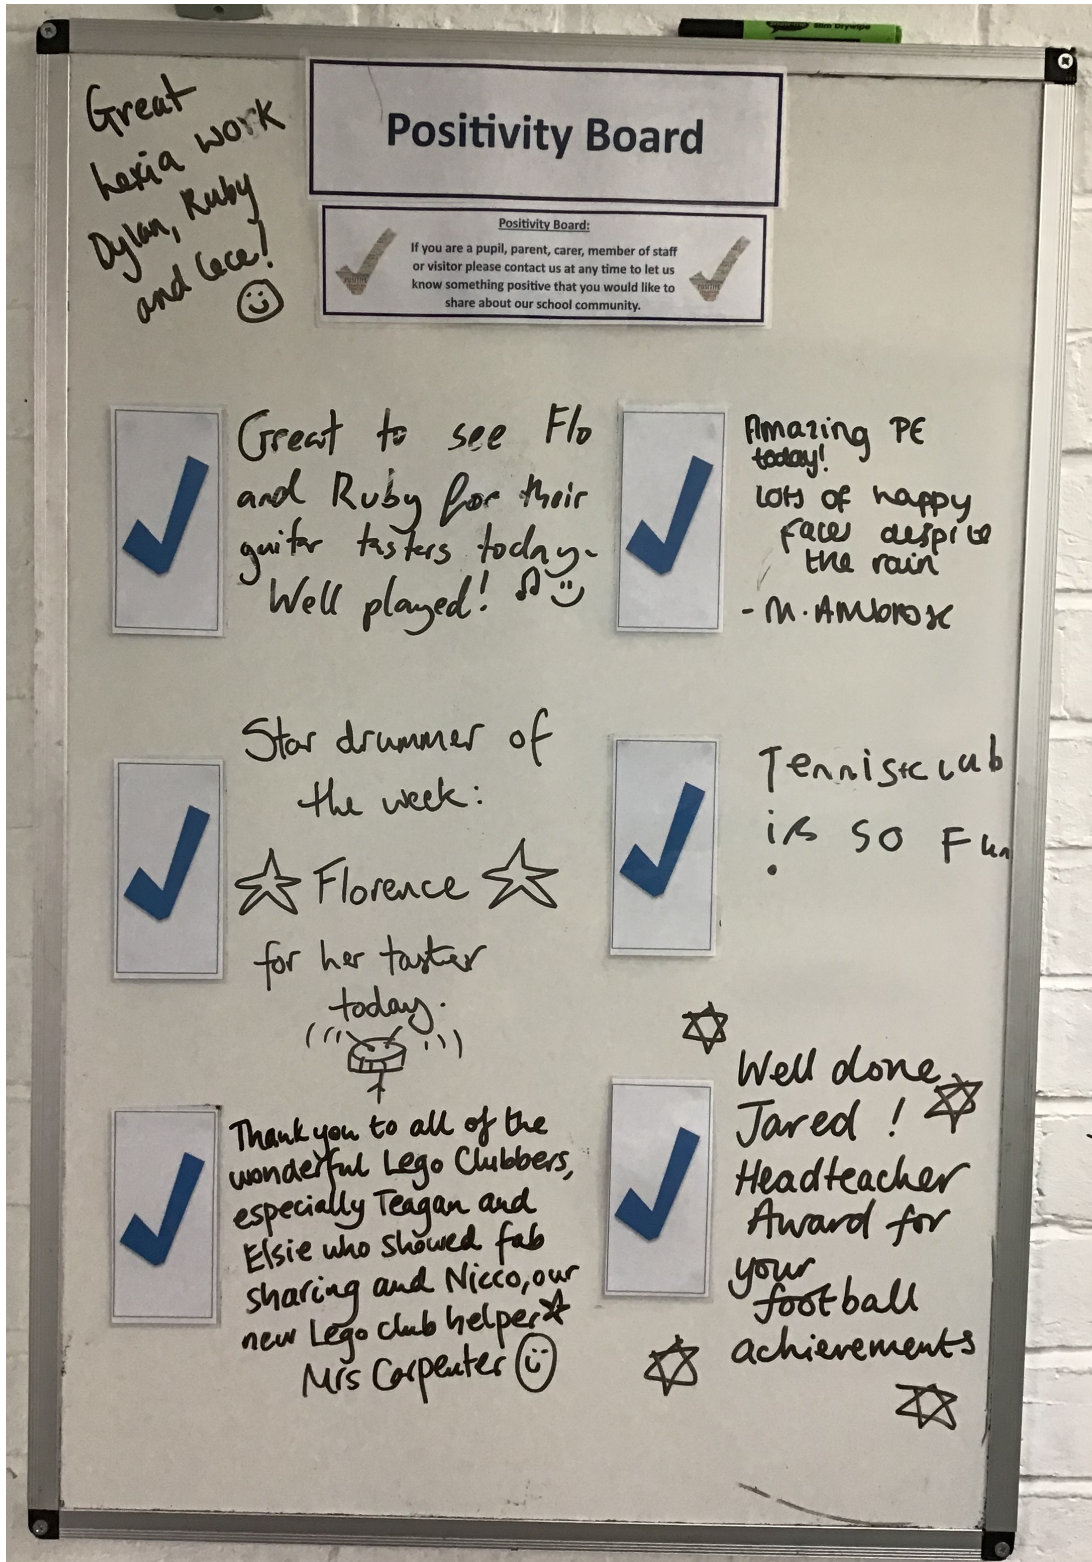 Slim Drywipe
Great
Lexia work
Dylan, Ruby
and Cece!
Positivity Board
Positivity Board:
If you are a pupil, parent, carer, member of staff
or visitor please contact us at any time to let us
know something positive that you would like to
share about our school community.
Great to see Flo
and Ruby for their
guitar tasters today-
Well played!
Amazing PE
today!
Lots of happy
faces despite
the rain
- M. Ambrose
Star drummer of
the week:
Florence
for her taster
today.
Tennis club
is so Fun
Thank you to all of the
wonderful Lego Clubbers,
especially Teagan and
Elsie who showed fab
sharing and Nicco, our
new Lego club helper
Mrs Carpenter
Well done
Jared !
Headteacher
Award for
your
football
achievements